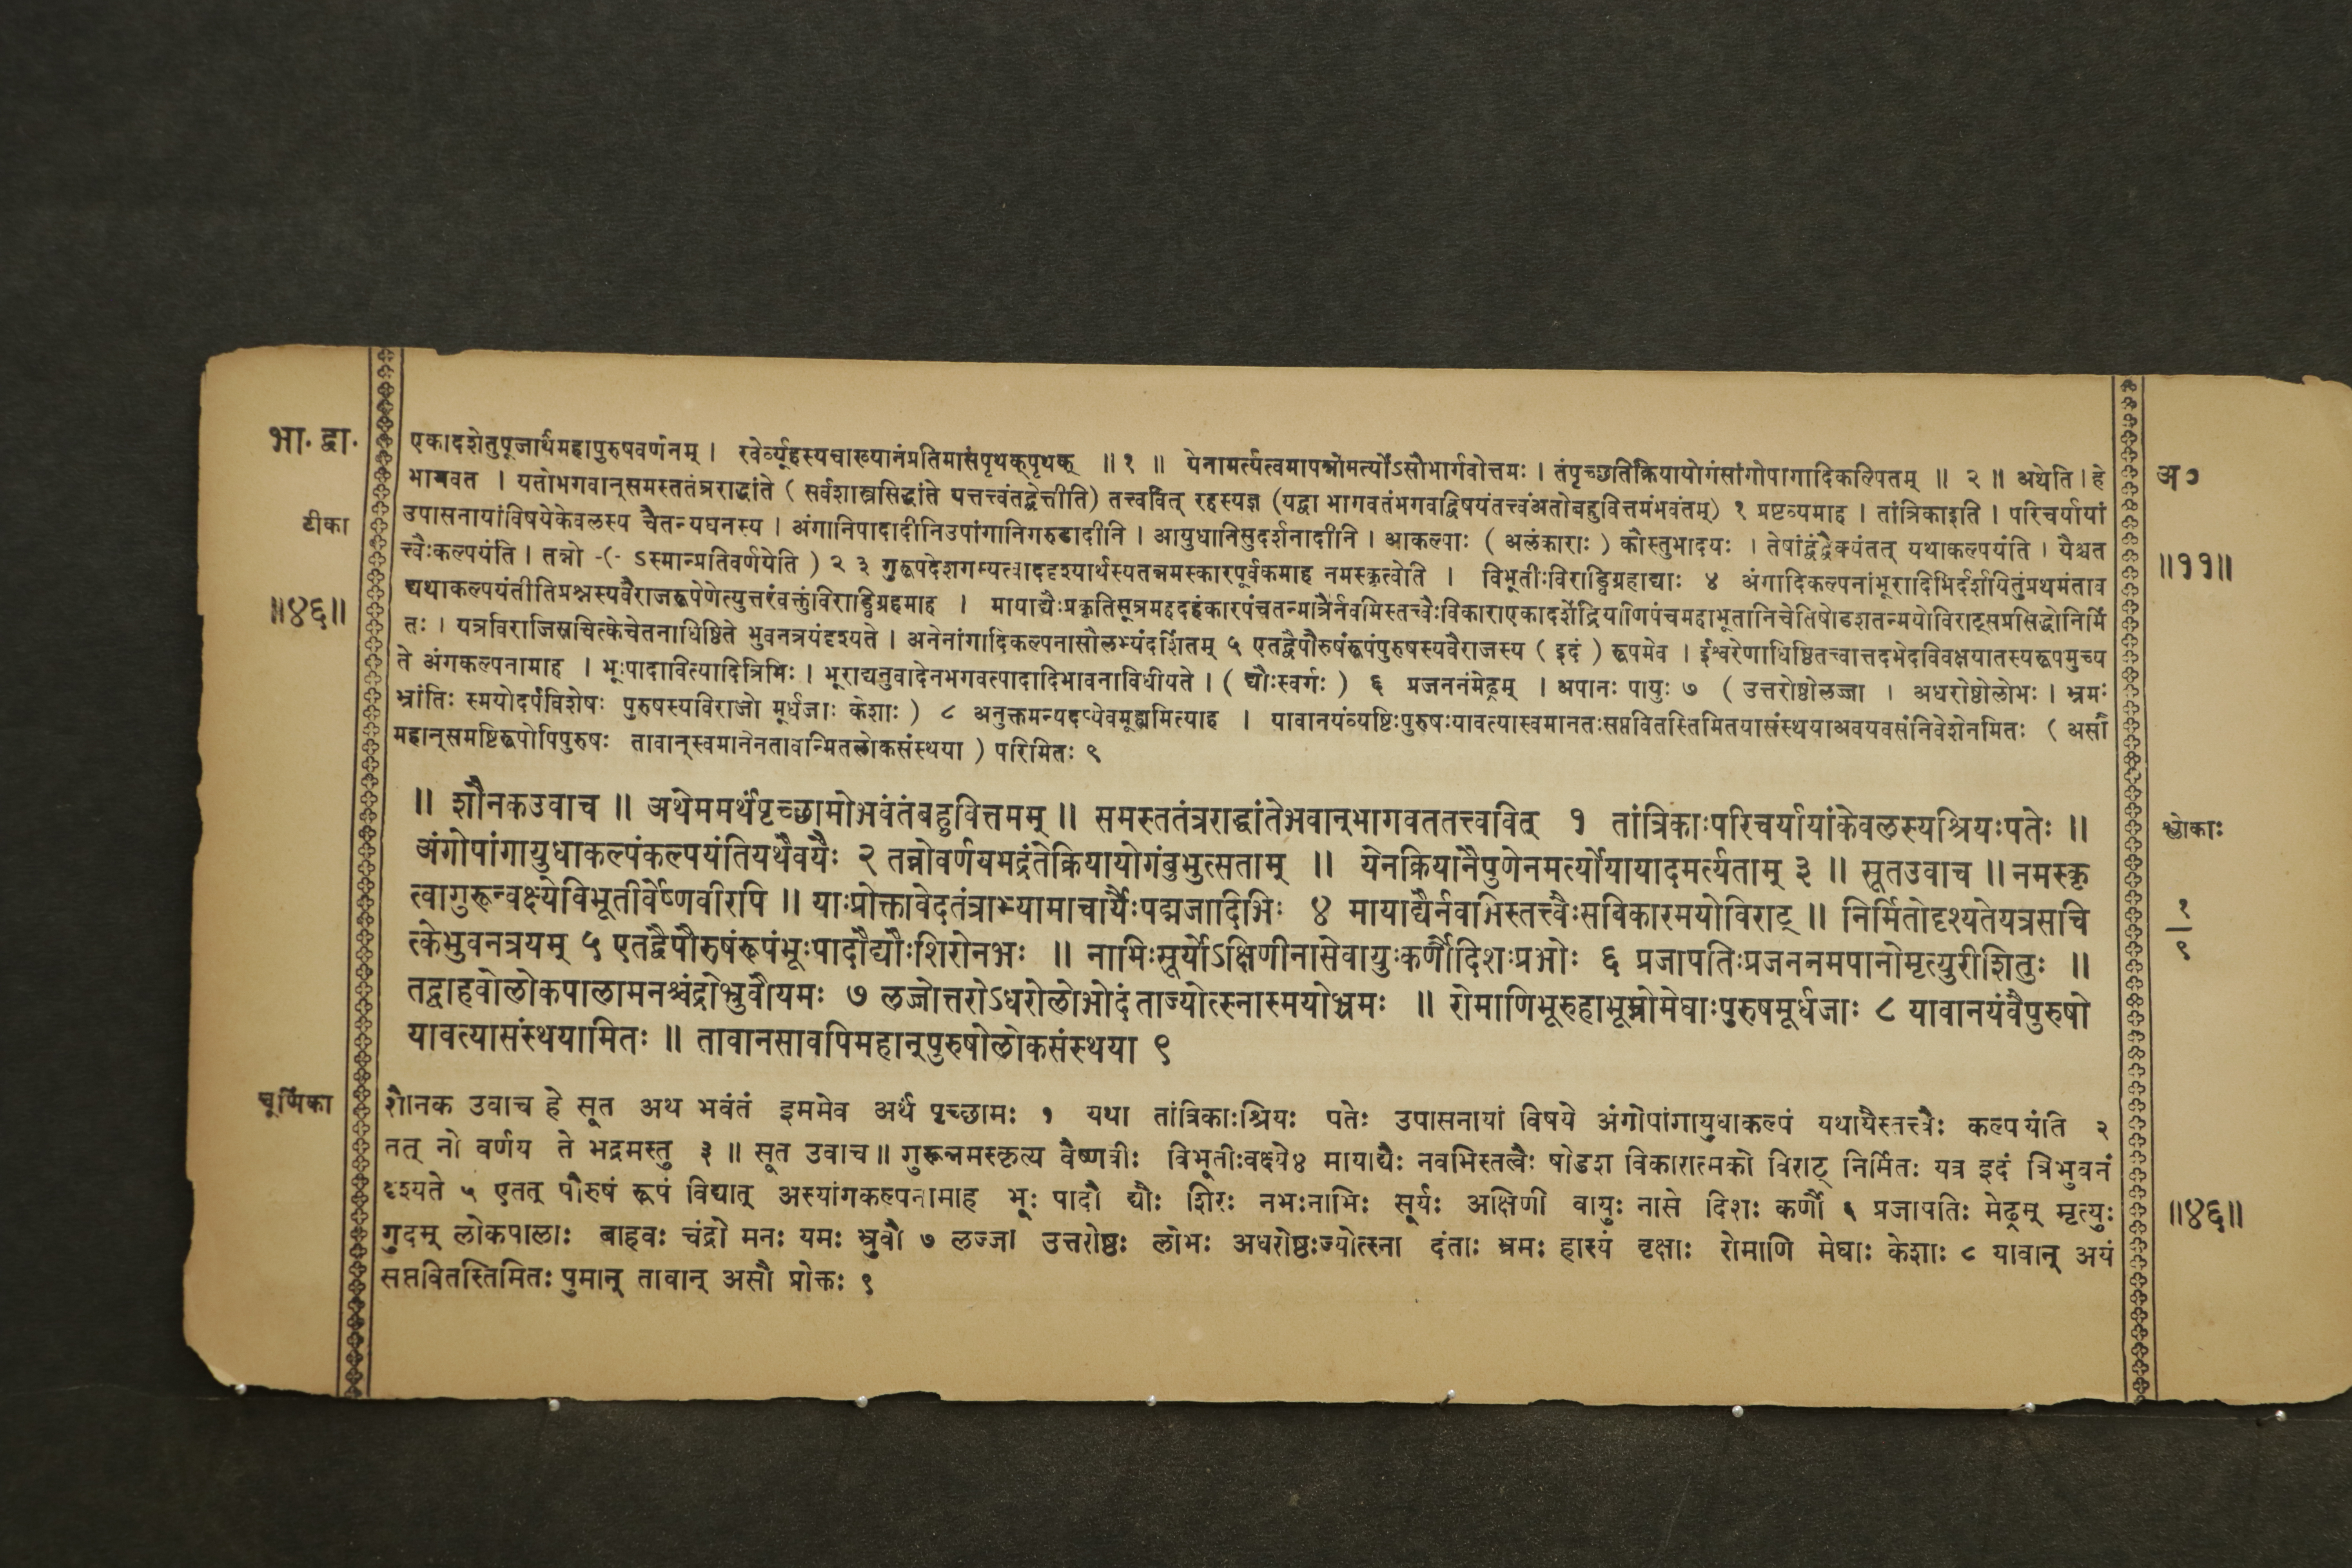 भा. द्वा.
टीका
॥४६॥
एकादशेतुपूजार्थमहापुरुषवर्णनम् । रवेर्व्यूहस्यचाख्यानंप्रतिमासंपृथक्पृथक् ॥ १ ॥ येनामर्त्यत्वमापन्नोमर्त्योऽसौभार्गवोत्तमः । तंपृच्छतिक्रियायोगंसांगोपागादिकल्पितम् ॥ २ ॥ अथेति । हे
भागवत । यतोभगवान्समस्ततंत्रराद्धांते ( सर्वशास्त्रसिद्धांते यत्तत्त्वंतद्वेत्तीति) तत्त्ववित् रहस्यज्ञ (यद्वा भागवतंभगवद्विषयंतत्त्वंअतोबहुवित्तमंभवंतम्) १ प्रष्टव्यमाह । तांत्रिकाइति । परिचर्यायां
उपासनायांविषयेकेवलस्य चैतन्यघनस्य । अंगानिपादादीनिउपांगानिगरुडादीनि । आयुधानिसुदर्शनादीनि । आकल्पाः ( अलंकाराः ) कौस्तुभादयः । तेषांद्वंद्वैक्यंतत् यथाकल्पयंति । यैश्चत
त्त्वैःकल्पयंति । तन्नो -(- ऽस्मान्प्रतिवर्णयेति ) २ ३ गुरूपदेशगम्यत्वाददृश्यार्थस्यतन्नमस्कारपूर्वकमाह नमस्कृत्वोति । विभूतीःविराड्विग्रहाद्याः ४ अंगादिकल्पनांभूरादिभिर्दर्शयितुंप्रथमंताव
द्यथाकल्पयंतीतिप्रश्नस्यवैराजरूपेणेत्युत्तरंवक्तुंविराड्विग्रहमाह । मायाद्यैःप्रकृतिसूत्रमहदहंकारपंचतन्मात्रैर्नवभिस्तत्त्वैःविकाराएकादशेंद्रियाणिपंचमहाभूतानिचेतिषोडशतन्मयोविराट्सप्रसिद्धोनिर्मि
तः । यत्रविराजिसचित्केचेतनाधिष्ठिते भुवनत्रयंदृश्यते । अनेनांगादिकल्पनासौलभ्यंदर्शितम् ५ एतद्वैपौरुषंरूपंपुरुषस्यवैराजस्य ( इदं ) रूपमेव । ईश्वरेणाधिष्ठितत्त्वात्तदभेदविवक्षयातस्यरूपमुच्य
ते अंगकल्पनामाह । भूःपादावित्यादित्रिभिः । भूराद्यनुवादेनभगवत्पादादिभावनाविधीयते । ( द्यौःस्वर्गः ) ६ प्रजननंमेढ्रम् । अपानः पायुः ७ ( उत्तरोष्ठोलज्जा । अधरोष्ठोलोभः । भ्रमः
भ्रांतिः स्मयोदर्पविशेषः पुरुषस्यविराजो मूर्धजाः केशाः ) ८ अनुक्तमन्यदप्येवमूह्यमित्याह । यावानयंव्यष्टिःपुरुषःयावत्यास्वमानतःसप्तवितस्तिमितयासंस्थयाअवयवसंनिवेशेनमितः ( असौ
महान्समष्टिरूपोपिपुरुषः तावान्स्वमानेनतावन्मितलोकसंस्थया ) परिमितः ९
॥ शौनकउवाच ॥ अथेममर्थंपृच्छामोभवंतंबहुवित्तमम् ॥ समस्ततंत्रराद्धांतेभवान्भागवततत्त्ववित् १ तांत्रिकाःपरिचर्यायांकेवलस्यश्रियःपतेः ॥
अंगोपांगायुधाकल्पंकल्पयंतियथैवयैः २ तन्नोवर्णयभद्रंतेक्रियायोगंबुभुत्सताम् ॥ येनक्रियानैपुणेनमर्त्योयायादमर्त्यताम् ३ ॥ सूतउवाच ॥ नमस्कृ
त्वागुरून्वक्ष्येविभूतीर्वैष्णवीरपि ॥ याःप्रोक्तावेदतंत्राभ्यामाचार्यैःपद्मजादिभिः ४ मायाद्यैर्नवभिस्तत्त्वैःसविकारमयोविराट् ॥ निर्मितोदृश्यतेयत्रसचि
त्केभुवनत्रयम् ५ एतद्वैपौरुषंरूपंभूःपादौद्यौःशिरोनभः ॥ नाभिःसूर्योऽक्षिणीनासेवायुःकर्णौदिशःप्रभोः ६ प्रजापतिःप्रजननमपानोमृत्युरीशितुः ॥
तद्बाहवोलोकपालामनश्चंद्रोभ्रुवौयमः ७ लज्जोत्तरोऽधरोलोभोदंताज्योत्स्नास्मयोभ्रमः ॥ रोमाणिभूरुहाभूम्नोमेघाःपुरुषमूर्धजाः ८ यावानयंवैपुरुषो
यावत्यासंस्थयामितः ॥ तावानसावपिमहान्पुरुषोलोकसंस्थया ९
चूर्णिका
शौनक उवाच हे सूत अथ भवंतं इममेव अर्थं पृच्छामः १ यथा तांत्रिकाःश्रियः पतेः उपासनायां विषये अंगोपांगायुधाकल्पं यथायैस्तत्त्वैः कल्पयंति २
तत् नो वर्णय ते भद्रमस्तु ३ ॥ सूत उवाच ॥ गुरून्नमस्कृत्य वैष्णवीः विभूतीःवक्ष्ये४ मायाद्यैः नवभिस्तत्वैः षोडश विकारात्मको विराट् निर्मितः यत्र इदं त्रिभुवनं
दृश्यते ५ एतत् पौरुषं रूपं विद्यात् अस्यांगकल्पनामाह भूः पादौ द्यौः शिरः नभःनाभिः सूर्यः अक्षिणी वायुः नासे दिशः कर्णौ ६ प्रजापतिः मेढ्रम् मृत्युः
गुदम् लोकपालाः बाहवः चंद्रो मनः यमः भ्रुवौ ७ लज्जा उत्तरोष्ठः लोभः अधरोष्ठःज्योत्स्ना दंताः भ्रमः हास्यं वृक्षाः रोमाणि मेघाः केशाः ८ यावान् अयं
सप्तवितस्तिमितः पुमान् तावान् असौ प्रोक्तः ९
अ०
॥११॥
श्लोकाः
१
९
॥४६॥